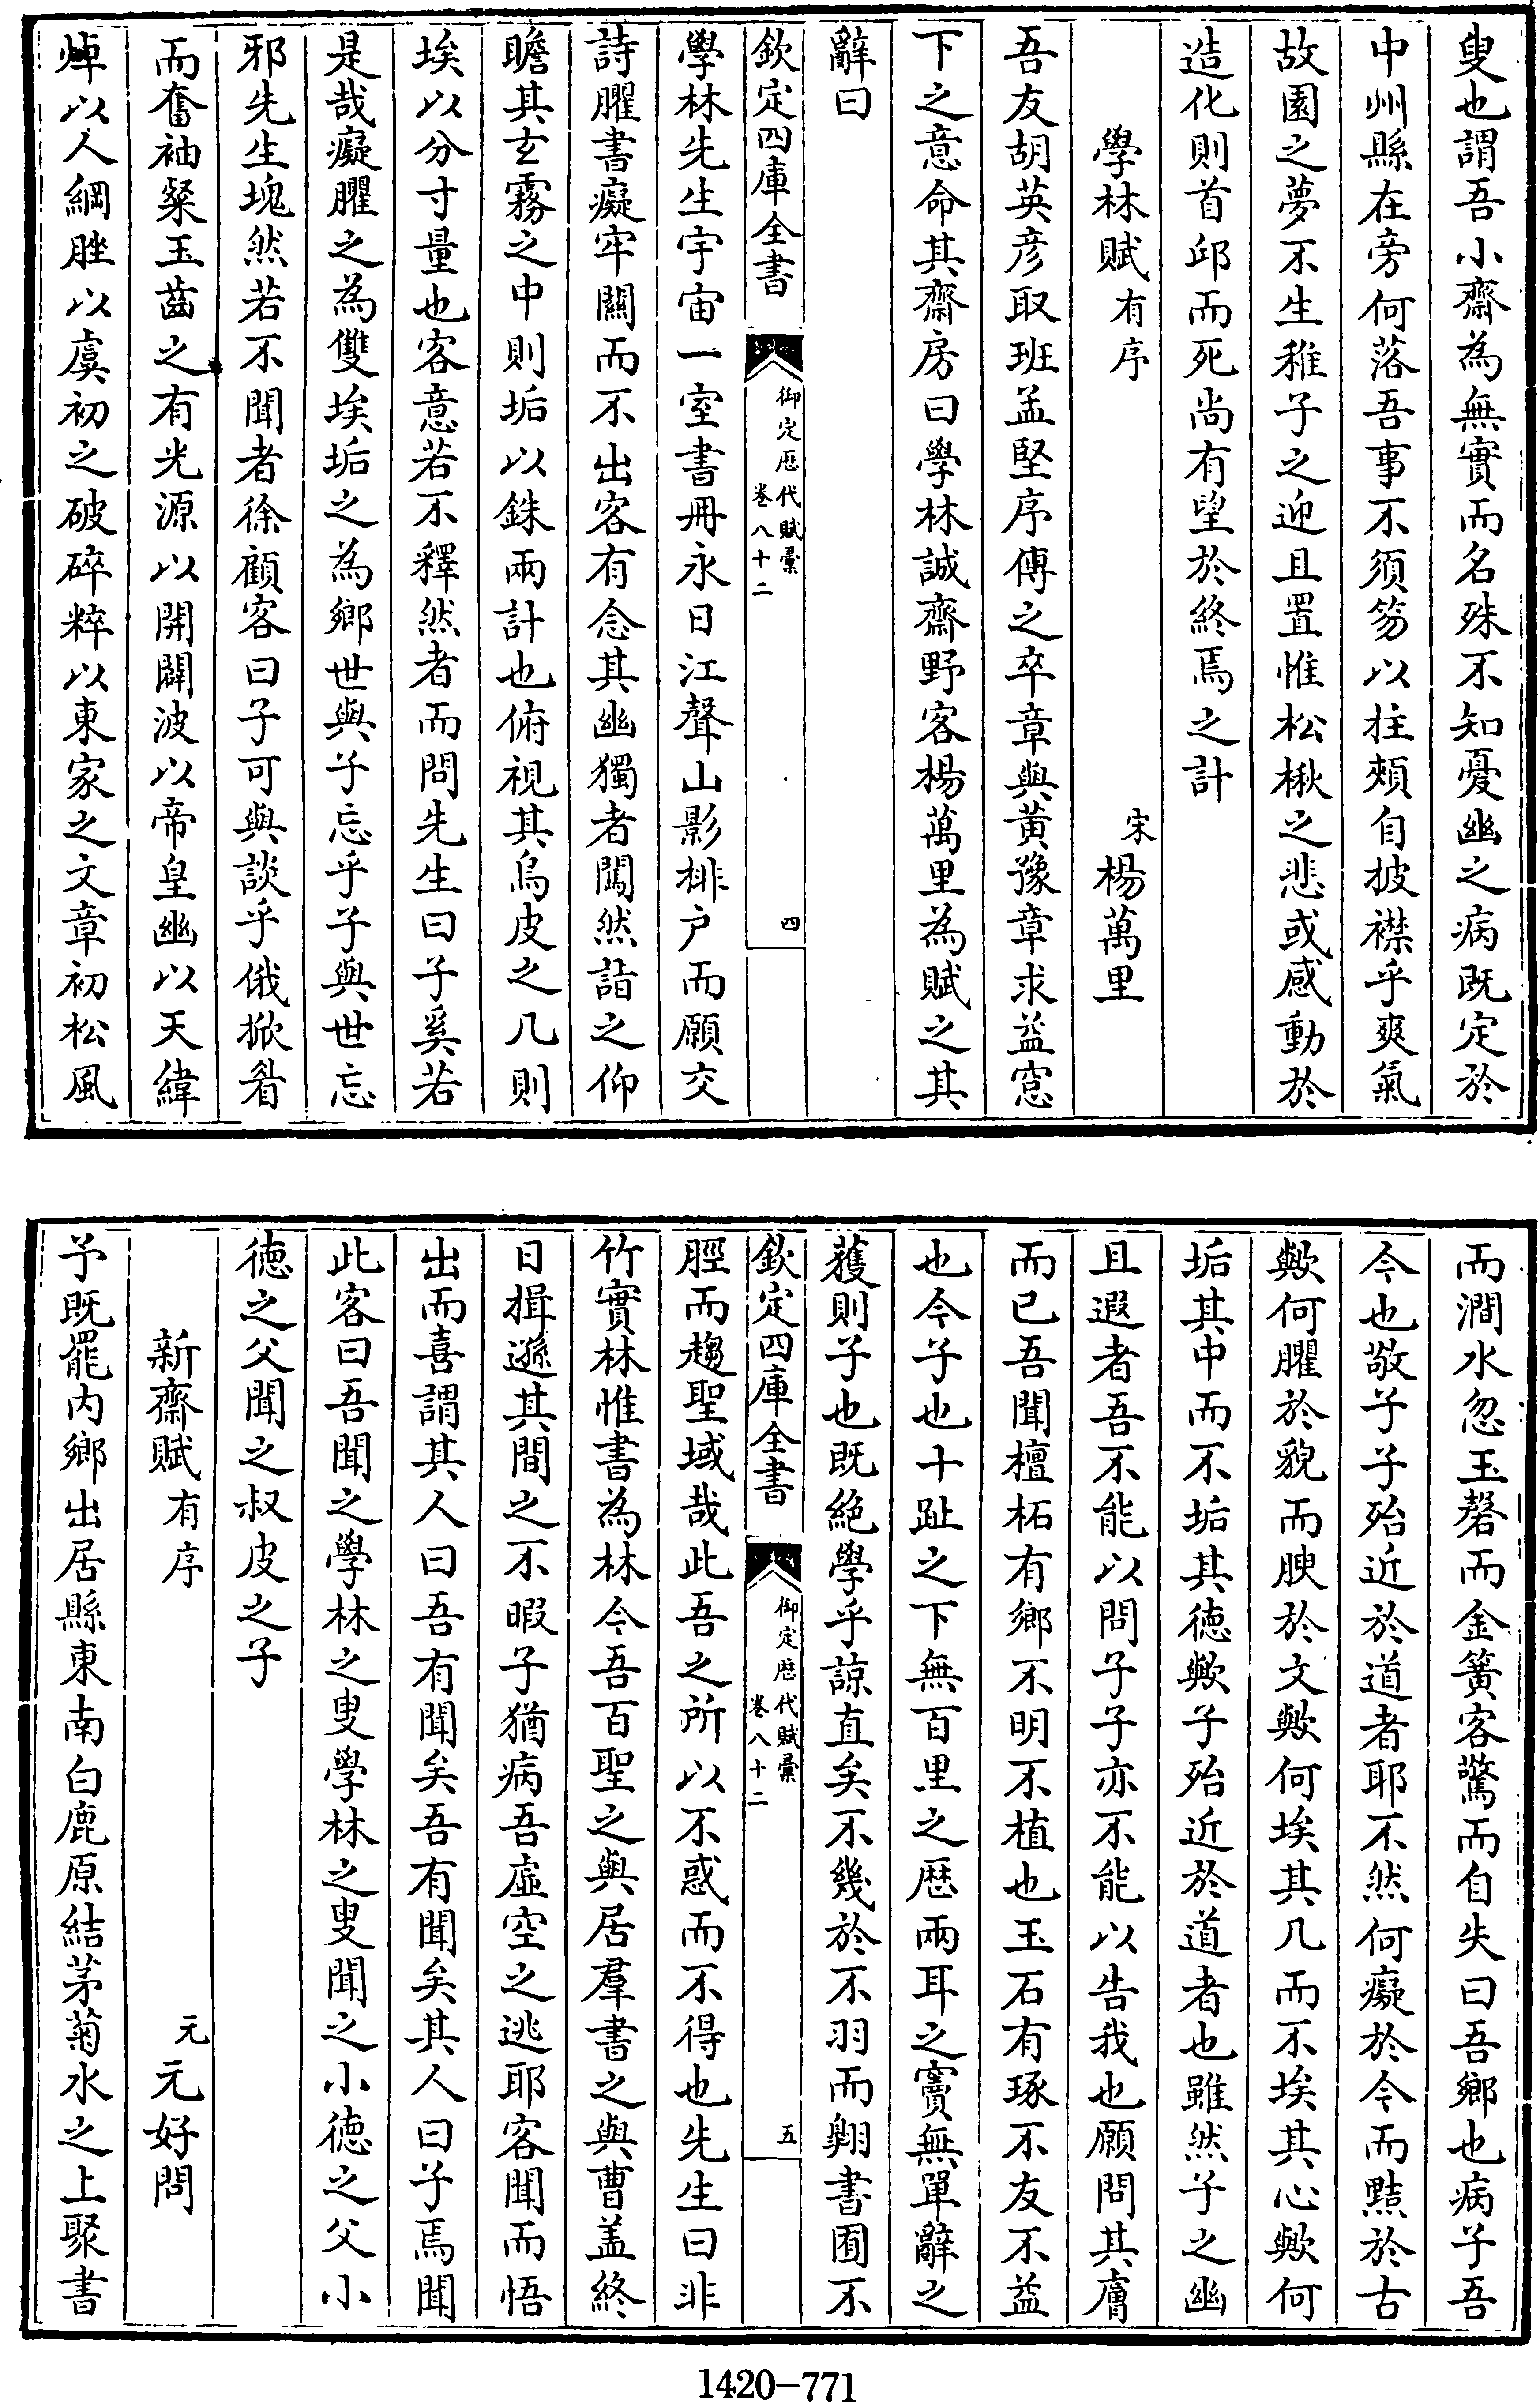 叟也謂吾小齋為無實而名殊不知憂幽之病既定於
中州縣在旁何落吾事不須笏以拄頰自披襟乎爽氣
故園之夢不生稚子之迎且置惟松楸之悲或感動於
造化則首邱而死尚有望於終焉之計
學林賦有序 宋楊萬里
吾友胡英彦取班孟堅序傳之卒章與黃豫章求益窓
下之意命其齋房曰學林誠齋野客楊萬里為賦之其
辭曰
欽定四庫全書 御定歴代賦彙 卷八十二 四
學林先生宇宙一室書冊永日江聲山影排户而願交
詩臞書癡牢關而不出客有念其幽獨者闖然詣之仰
瞻其玄霧之中則垢以銖兩計也俯視其烏皮之几則
埃以分寸量也客意若不釋然者而問先生曰子奚若
是哉癡臞之為雙埃垢之為鄉世與子忘乎子與世忘
邪先生塊然若不聞者徐顧客曰子可與談乎俄掀眉
而奮袖粲玉齒之有光源以開闢波以帝皇幽以天緯
焯以人綱胜以虞初之破碎粹以東家之文章初松風
而澗水忽玉磬而金簧客驚而自失曰吾鄉也病子吾
今也敬子子殆近於道者耶不然何癡於今而黠於古
歟何臞於貌而腴於文歟何埃其几而不埃其心歟何
垢其中而不垢其徳歟子殆近於道者也雖然子之幽
且遐者吾不能以問子子亦不能以告我也願問其膚
而已吾聞檀柘有鄉不明不植也玉石有琢不友不益
也今子也十趾之下無百里之歴兩耳之竇無單辭之
獲則子也既絶學乎諒直矣不幾於不羽而翺書囿不
欽定四庫全書 御定歴代賦彙 卷八十二 五
脛而趨聖域哉此吾之所以不惑而不得也先生曰非
竹實林惟書為林今吾百聖之與居羣書之與曹盖終
日揖遜其間之不暇子猶病吾虛空之逃耶客聞而悟
出而喜謂其人曰吾有聞矣吾有聞矣其人曰子焉聞
此客曰吾聞之學林之叟學林之叟聞之小徳之父小
徳之父聞之叔皮之子
新齋賦有序 元元好問
予既罷内鄉出居縣東南白鹿原結茅菊水之上聚書
1420-771